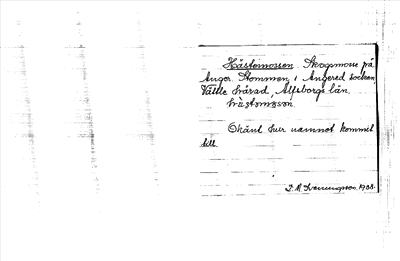 Hästemossen. Skogsmosse på
Anger. Stommen, i Angered socken
Vättle härad, Älfsborgs län.
hästomosson
Okänt hur namnet kommit
till
1908.